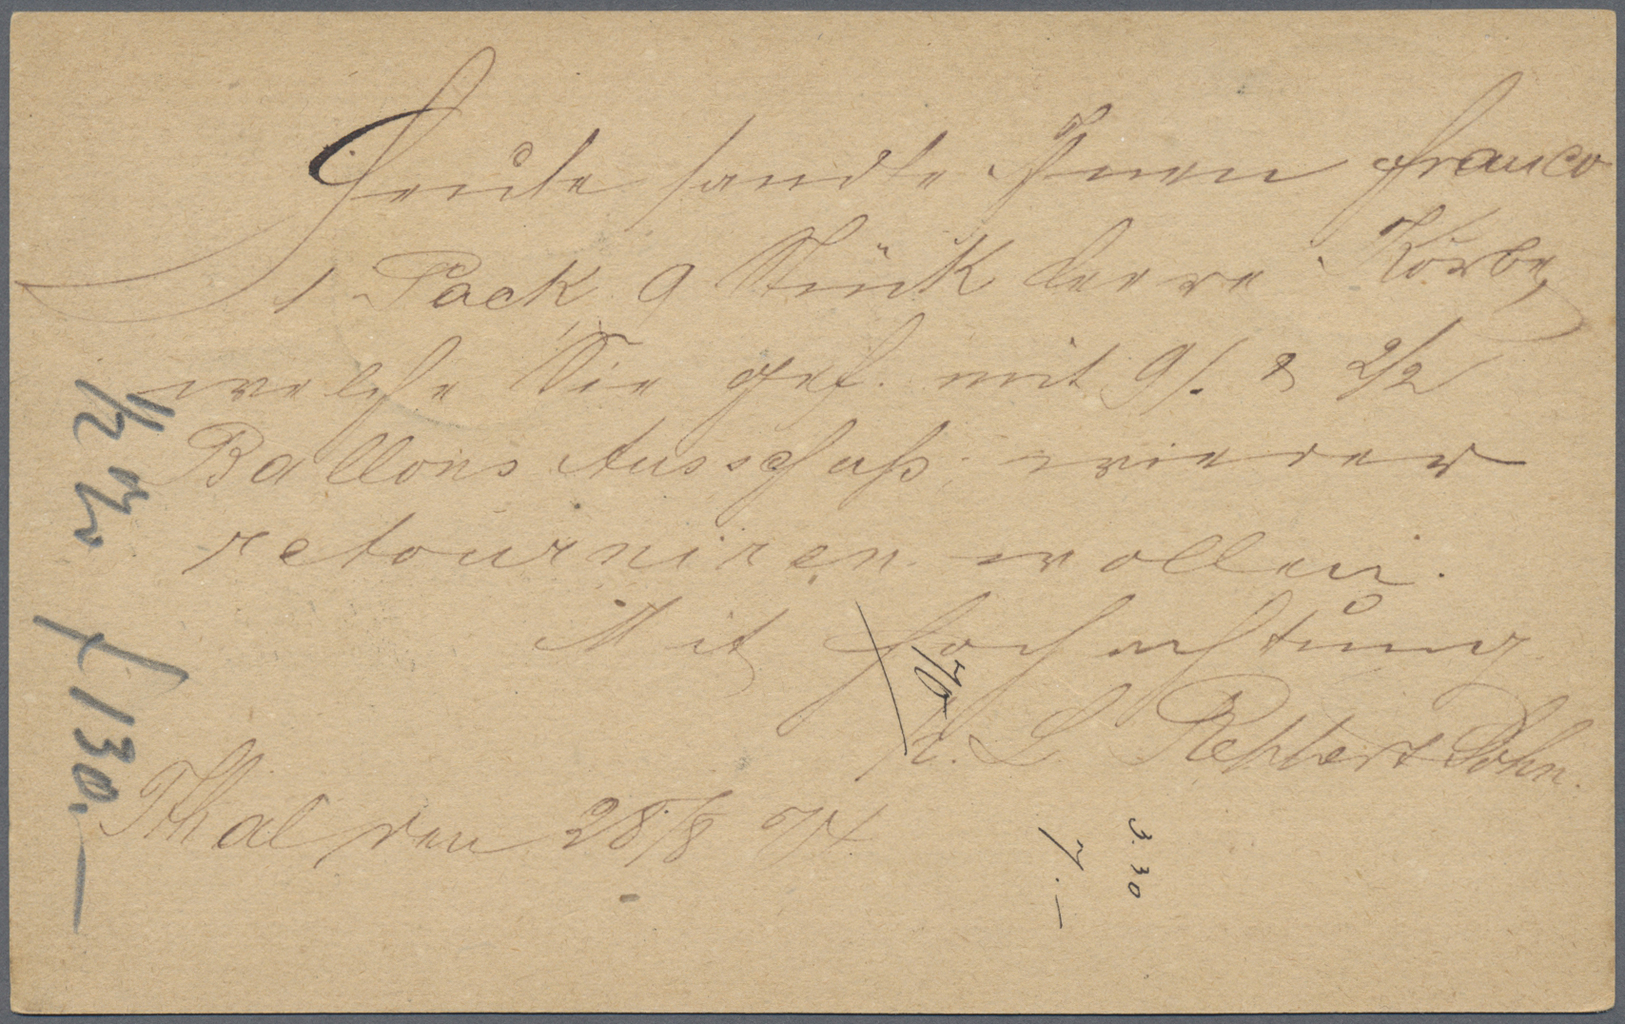 Heute sandte Ihnen franco
1 Pack, 9 Stück leere Körbe,
welche Sie gef. mit 9/. & 2/2
Ballons Ausschuß wieder
retourniren wollen.
Mit Hochachtung
L Rehbert Sohn.
Thal den 28/8 74
3.30
7.–
130.–